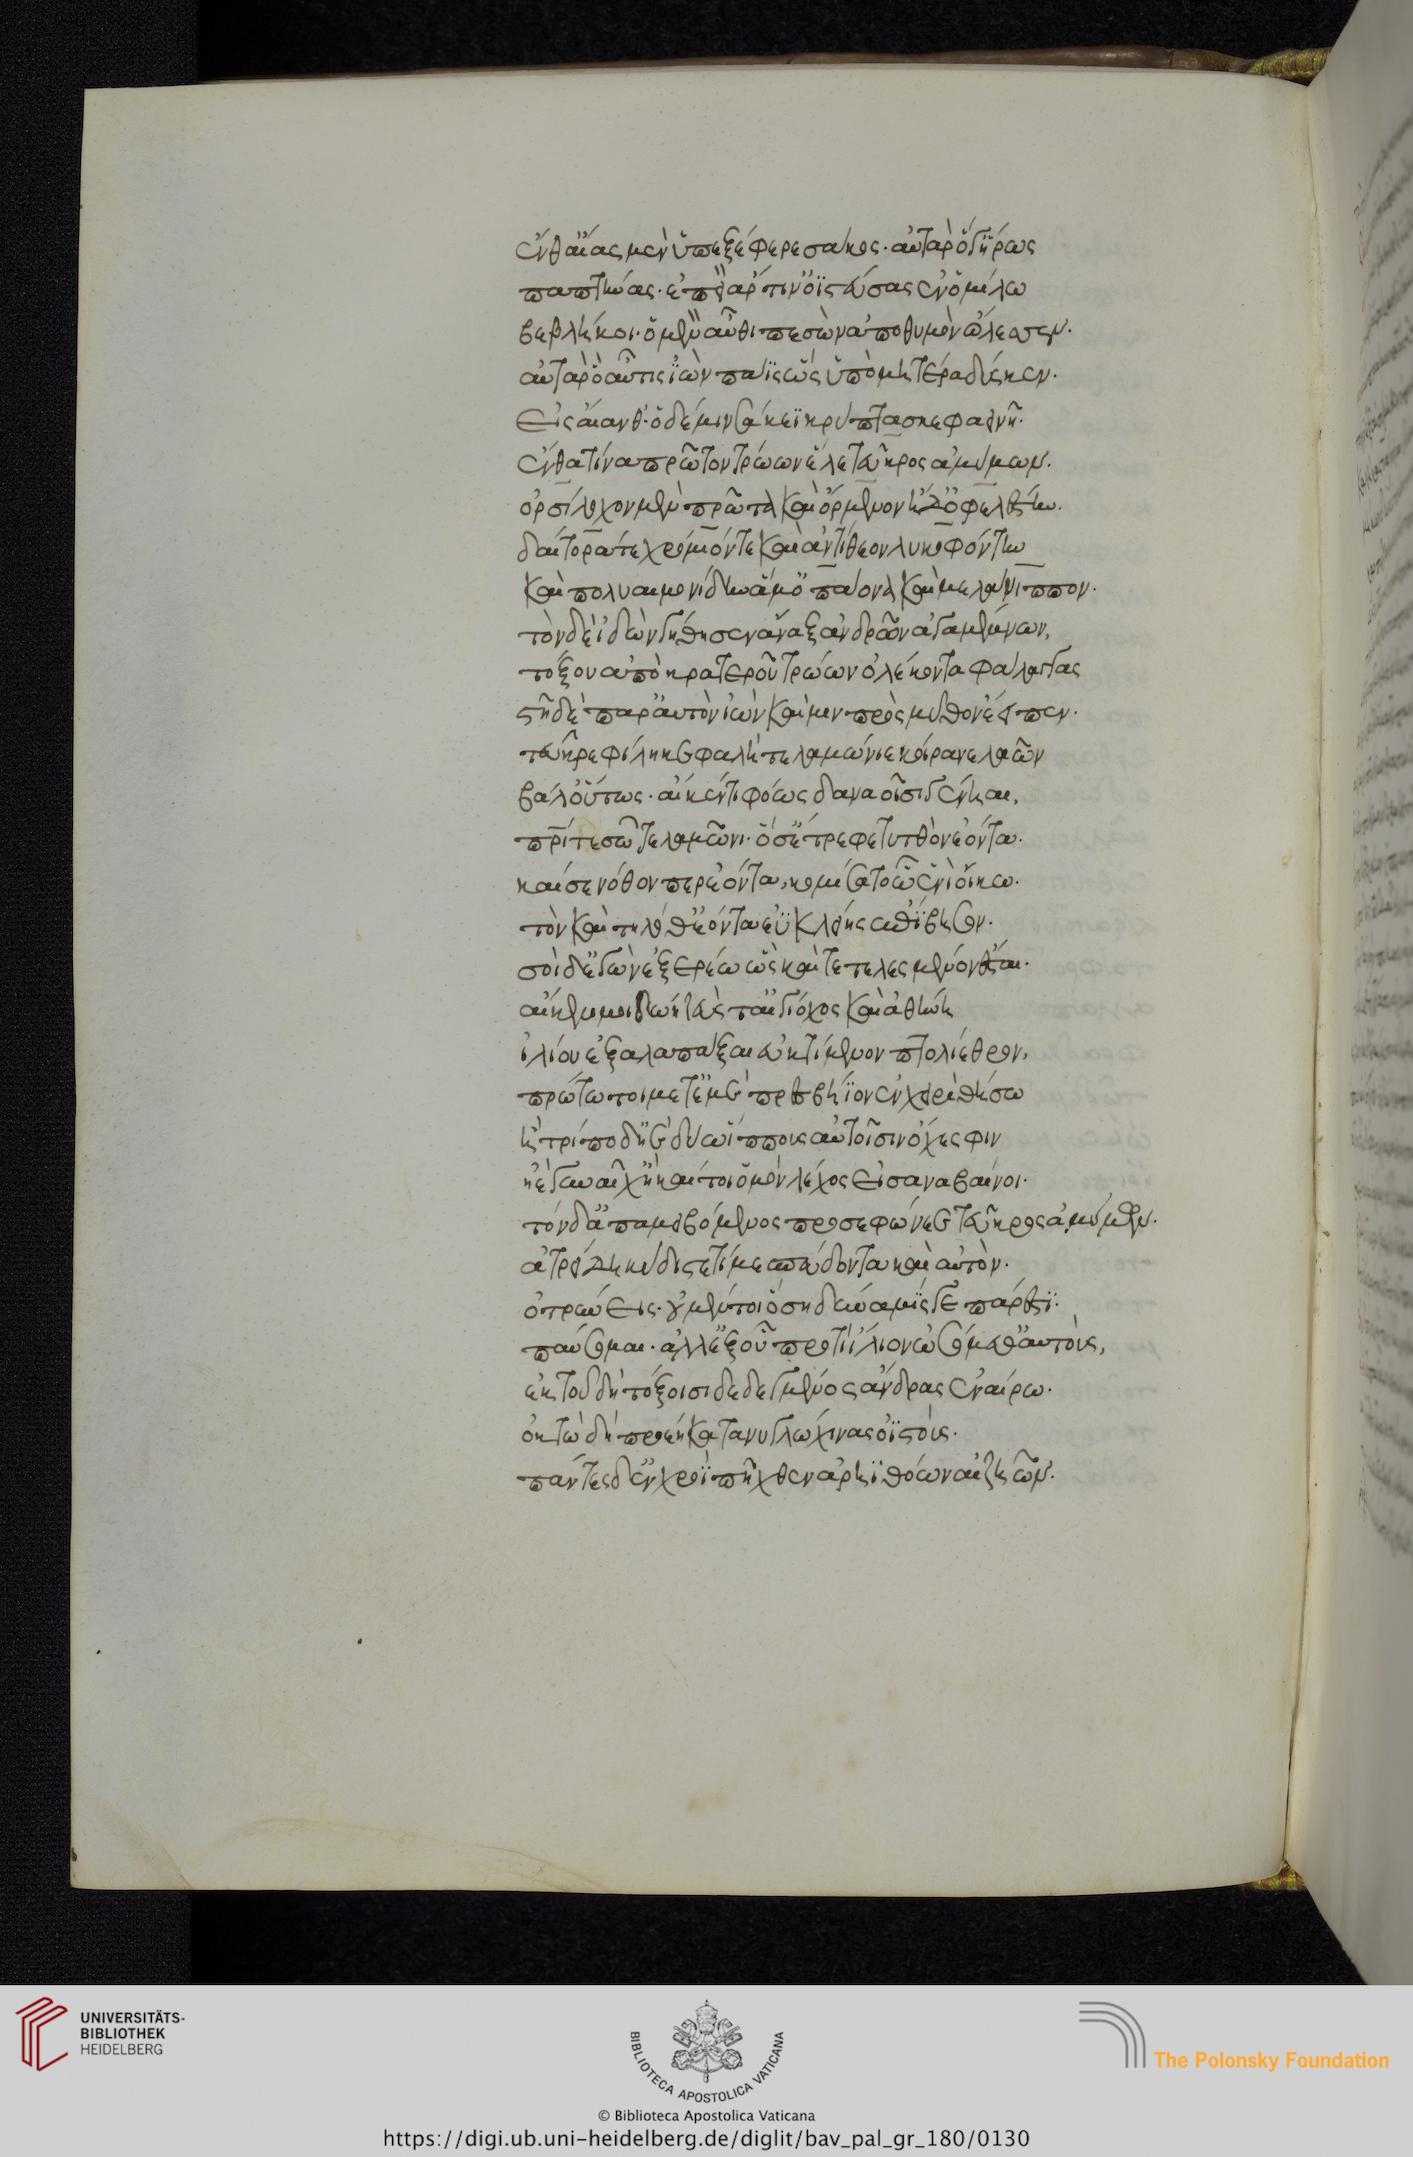 ἔνθ' αἴας μὲν ὑπεξέφερε σάκος· αὐτὰρ ὅγ' ἥρως
παπτήνας· ἐπεὶ ἄρ τιν' ὀϊστεύσας ἐν ὁμίλω
βεβλήκοι· ὁ μὲν αὖθι πεσὼν ἀπὸ θυμὸν ὤλεσεν·
αὐτὰρ ὁ αὖτις ἰὼν πάϊς ὣς ὑπὸ μητέρα δύσκεν·
εἰς αἴανθ'· ὁ δέ μιν σάκεϊ κρύπτασκε φαεινῆ·
ἔνθα τίνα πρῶτον τρώων ἕλε τεῦκρος ἀμύμων·
ὀρσίλοχον μὲν πρῶτα καὶ ὄρμενον ἠδ' ὀφελέστην·
δαίτορά τε χρομίόν τε καὶ ἀντίθεον λυκοφόντην
καὶ πολυαιμονίδην ἀμοπάονα καὶ μελάνιππον·
τὸν δὲ ἰδὼν γήθησεν ἄναξ ἀνδρῶν ἀγαμέμνων,
τόξου ἀπὸ κρατεροῦ τρώων ὀλέκοντα φάλαγγας
στῆ δὲ παρ' αὐτὸν ἰὼν καὶ μιν πρὸς μῦθον ἔειπεν·
τεῦκρε φίλη κεφαλὴ τελαμώνιε κοίρανε λαῶν
βάλλ' οὕτως· αἴ κέν τι φόως δαναοῖσι γένηαι,
πρί τε σῶ τελαμῶνι· ὅ σ' ἔτρεφε τυτθὸν ἐόντα·
καί σε νόθον περ ἐόντα, κομίσατο ὧ ἐνὶ οἴκω·
τὸν καὶ τηλόθ' ἐόντα ἐϋκλείης ἐπίβησον·
σοὶ δ' ἐγὼν ἐξερέω ὡς καὶ τετελεσμένον ἔσται·
αἴ κέν μοι δώη ζεύς τ' αἰγίοχος καὶ ἀθήνη
ἰλίου ἐξαλαπάξαι ἐϋκτίμενον πτολίεθρον,
πρώτω τοι μετ' ἐμὲ πρεσβήϊον ἐν χερὶ θήσω
ἢ τρίποδ' ἠὲ δύω ἵππους αὐτοῖσιν ὄχεσφιν
ἠὲ γυναῖχ' ἥ κέν τοι ὁμὸν λέχος εἰσαναβαίνοι·
τὸν δ' ἀπαμειβόμενος προσεφώνεε τεῦκρος ἀμύμων·
ἀτρείδη κύδιστε τί με σπεύδοντα καὶ αὐτὸν·
ὀτρύνεις· οὐ μέν τοι ὅση δύναμίς γε πάρεστι·
παύομαι· ἀλλ' ἐξ οὗ προτὶ ἴλιον ὠσάμεθ' αὐτοὺς,
ἐκ τοῦ δὴ τόξοισι δεδεγμένος ἄνδρας ἐναίρω·
ὀκτὼ δὴ προέηκα τανυγλώχινας ὀϊστοὺς·
πάντες δ' ἐν χροῒ πῆχθεν ἀρηϊθόων αἰζηῶν·
UNIVERSITÄTS-
BIBLIOTHEK
HEIDELBERG
BIBLIOTECA APOSTOLICA VATICANA
The Polonsky Foundation
© Biblioteca Apostolica Vaticana
https://digi.ub.uni-heidelberg.de/diglit/bav_pal_gr_180/0130